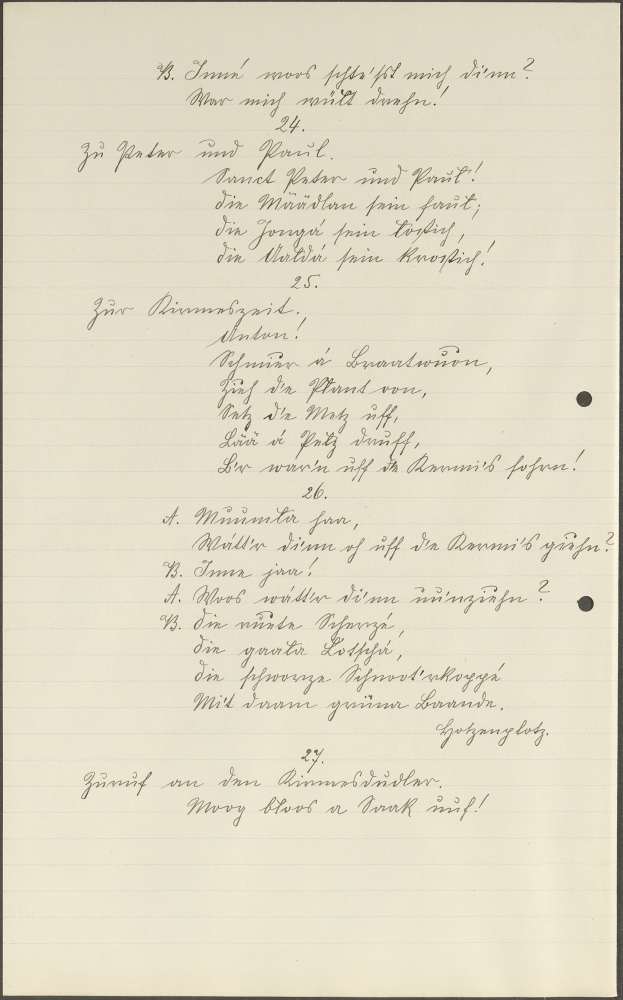 B. Inné woos schte'hst mich di'nn?
War mich wüll drehn!
24.
Zu Peter und Paul.
Sanct Peter und Paul!
Die Määdlan sein faul;
die Jongá sein lostich,
die Aaldá sein krostich!
25.
Zur Kirmeszeit.
Anton!
Schmier á Braatwuon,
Zieh d'e Pfant oon,
Setz d'e Metz uff,
Lää á Pelz druff,
B'r war'n uff de Kermi's fohrn!
26.
A. Muumla haa,
Wátt'r di'nn oh uff d'e Kermi's giehn?
B. Inne jaa!
A. Woos wátt'r di'nn uu'nziehn?
B. Die ruute Scherzé,
die gaala Lotschá,
die schworze Schnoot'rkoppé
Mit daam grüna Baande.
Hotzenplotz.
27.
Zuruf an den Kirmesdudler.
Moog bloos a Saak uuf!